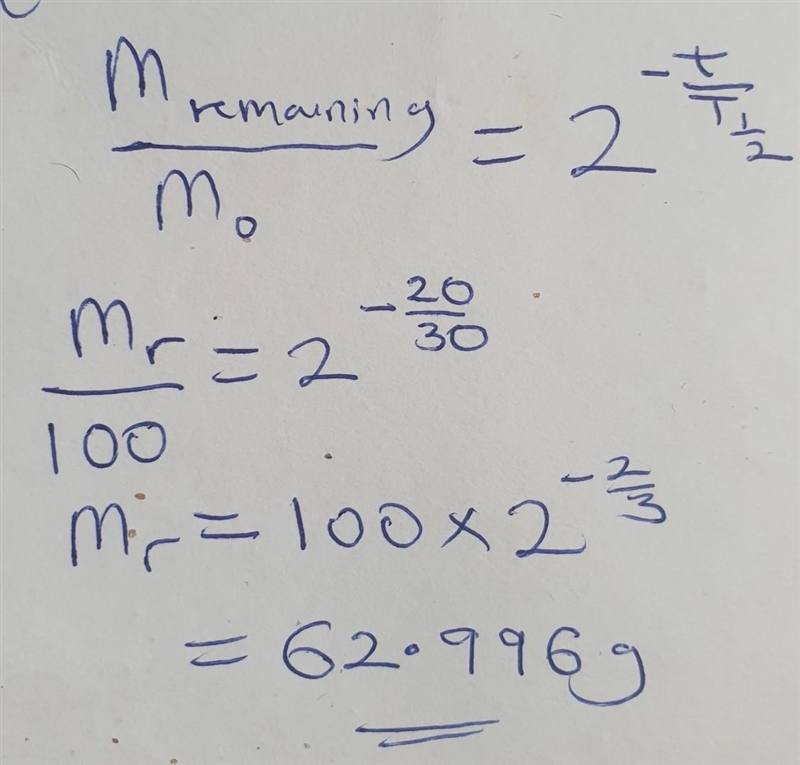 M remaining / M₀ = 2^(-t/T½)
Mr / 100 = 2^(-20/30)
Mr = 100 × 2^(-2/3)
= 62.996g